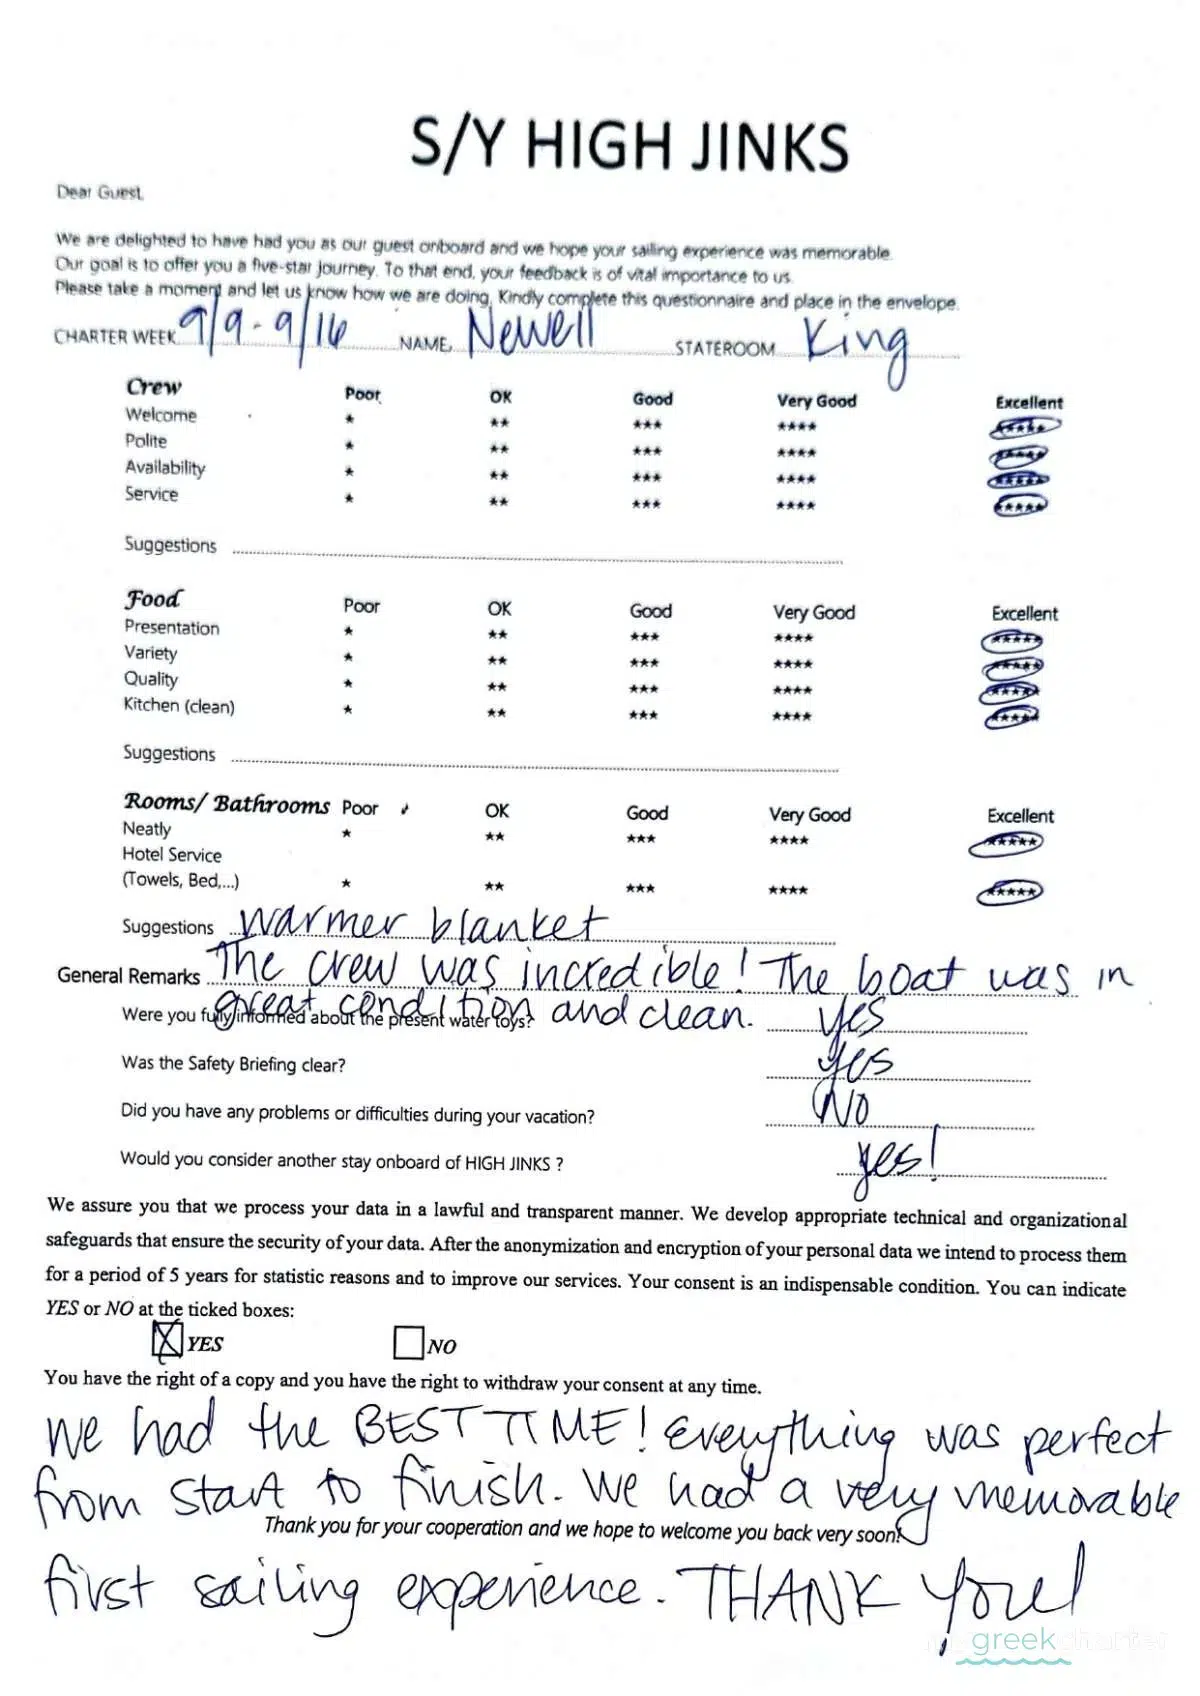 S/Y HIGH JINKS
Dear Guest,
We are delighted to have had you as our guest onboard and we hope your sailing experience was memorable.
Our goal is to offer you a five-star journey. To that end, your feedback is of vital importance to us.
Please take a moment and let us know how we are doing. Kindly complete this questionnaire and place in the envelope.
CHARTER WEEK 9/9-9/16 NAME Newell STATEROOM King
Crew Poor OK Good Very Good Excellent
Welcome * ** *** **** *****
Polite * ** *** **** *****
Availability * ** *** **** *****
Service * ** *** **** *****
Suggestions
Food Poor OK Good Very Good Excellent
Presentation * ** *** **** *****
Variety * ** *** **** *****
Quality * ** *** **** *****
Kitchen (clean) * ** *** **** *****
Suggestions
Rooms/ Bathrooms Poor OK Good Very Good Excellent
Neatly * ** *** **** *****
Hotel Service
(Towels, Bed,...) * ** *** **** *****
Suggestions warmer blanket
General Remarks The crew was incredible! The boat was in
great condition and clean.
Were you fully informed about the present water toys? yes
Was the Safety Briefing clear? yes
Did you have any problems or difficulties during your vacation? NO
Would you consider another stay onboard of HIGH JINKS ? yes!
We assure you that we process your data in a lawful and transparent manner. We develop appropriate technical and organizational
safeguards that ensure the security of your data. After the anonymization and encryption of your personal data we intend to process them
for a period of 5 years for statistic reasons and to improve our services. Your consent is an indispensable condition. You can indicate
YES or NO at the ticked boxes:
X YES NO
You have the right of a copy and you have the right to withdraw your consent at any time.
We had the BEST TIME! Everything was perfect
from start to finish. We had a very memorable
Thank you for your cooperation and we hope to welcome you back very soon!
first sailing experience. THANK You!
greekcharter